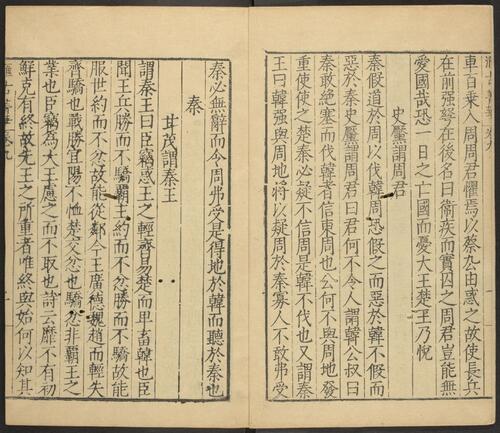 車百乘入周周君懼焉以蔡厹由惑之故使長兵
在前强弩在後名曰衛疾而實囚之周君豈能無
愛國哉恐一日之亡國而憂大王楚王乃悅
史黶謂周君
秦假道於周以伐韓周恐假之而惡於韓不假而
惡於秦史黶謂周君曰君何不令人謂韓公叔曰
秦敢絶塞而伐韓者信東周也公何不與周地發
重使使之楚秦必疑不信周是韓不伐也又謂秦
王曰韓强與周地將以疑周於秦寡人不敢弗受
秦必無辭而令周弗受是得地於韓而聽於秦也
秦
甘茂謂秦王
謂秦王曰臣竊惑王之輕齊易楚而卑畜韓也臣
聞王兵勝而不驕霸王約而不忿勝而不驕故能
服世約而不忿故能從鄰今王廣德魏趙而輕失
齊驕也戰勝宜陽不恤楚交忿也驕忿非霸王之
業也臣竊爲大王慮之而不取也詩云靡不有初
鮮克有終故先王之所重者唯終與始何以知其